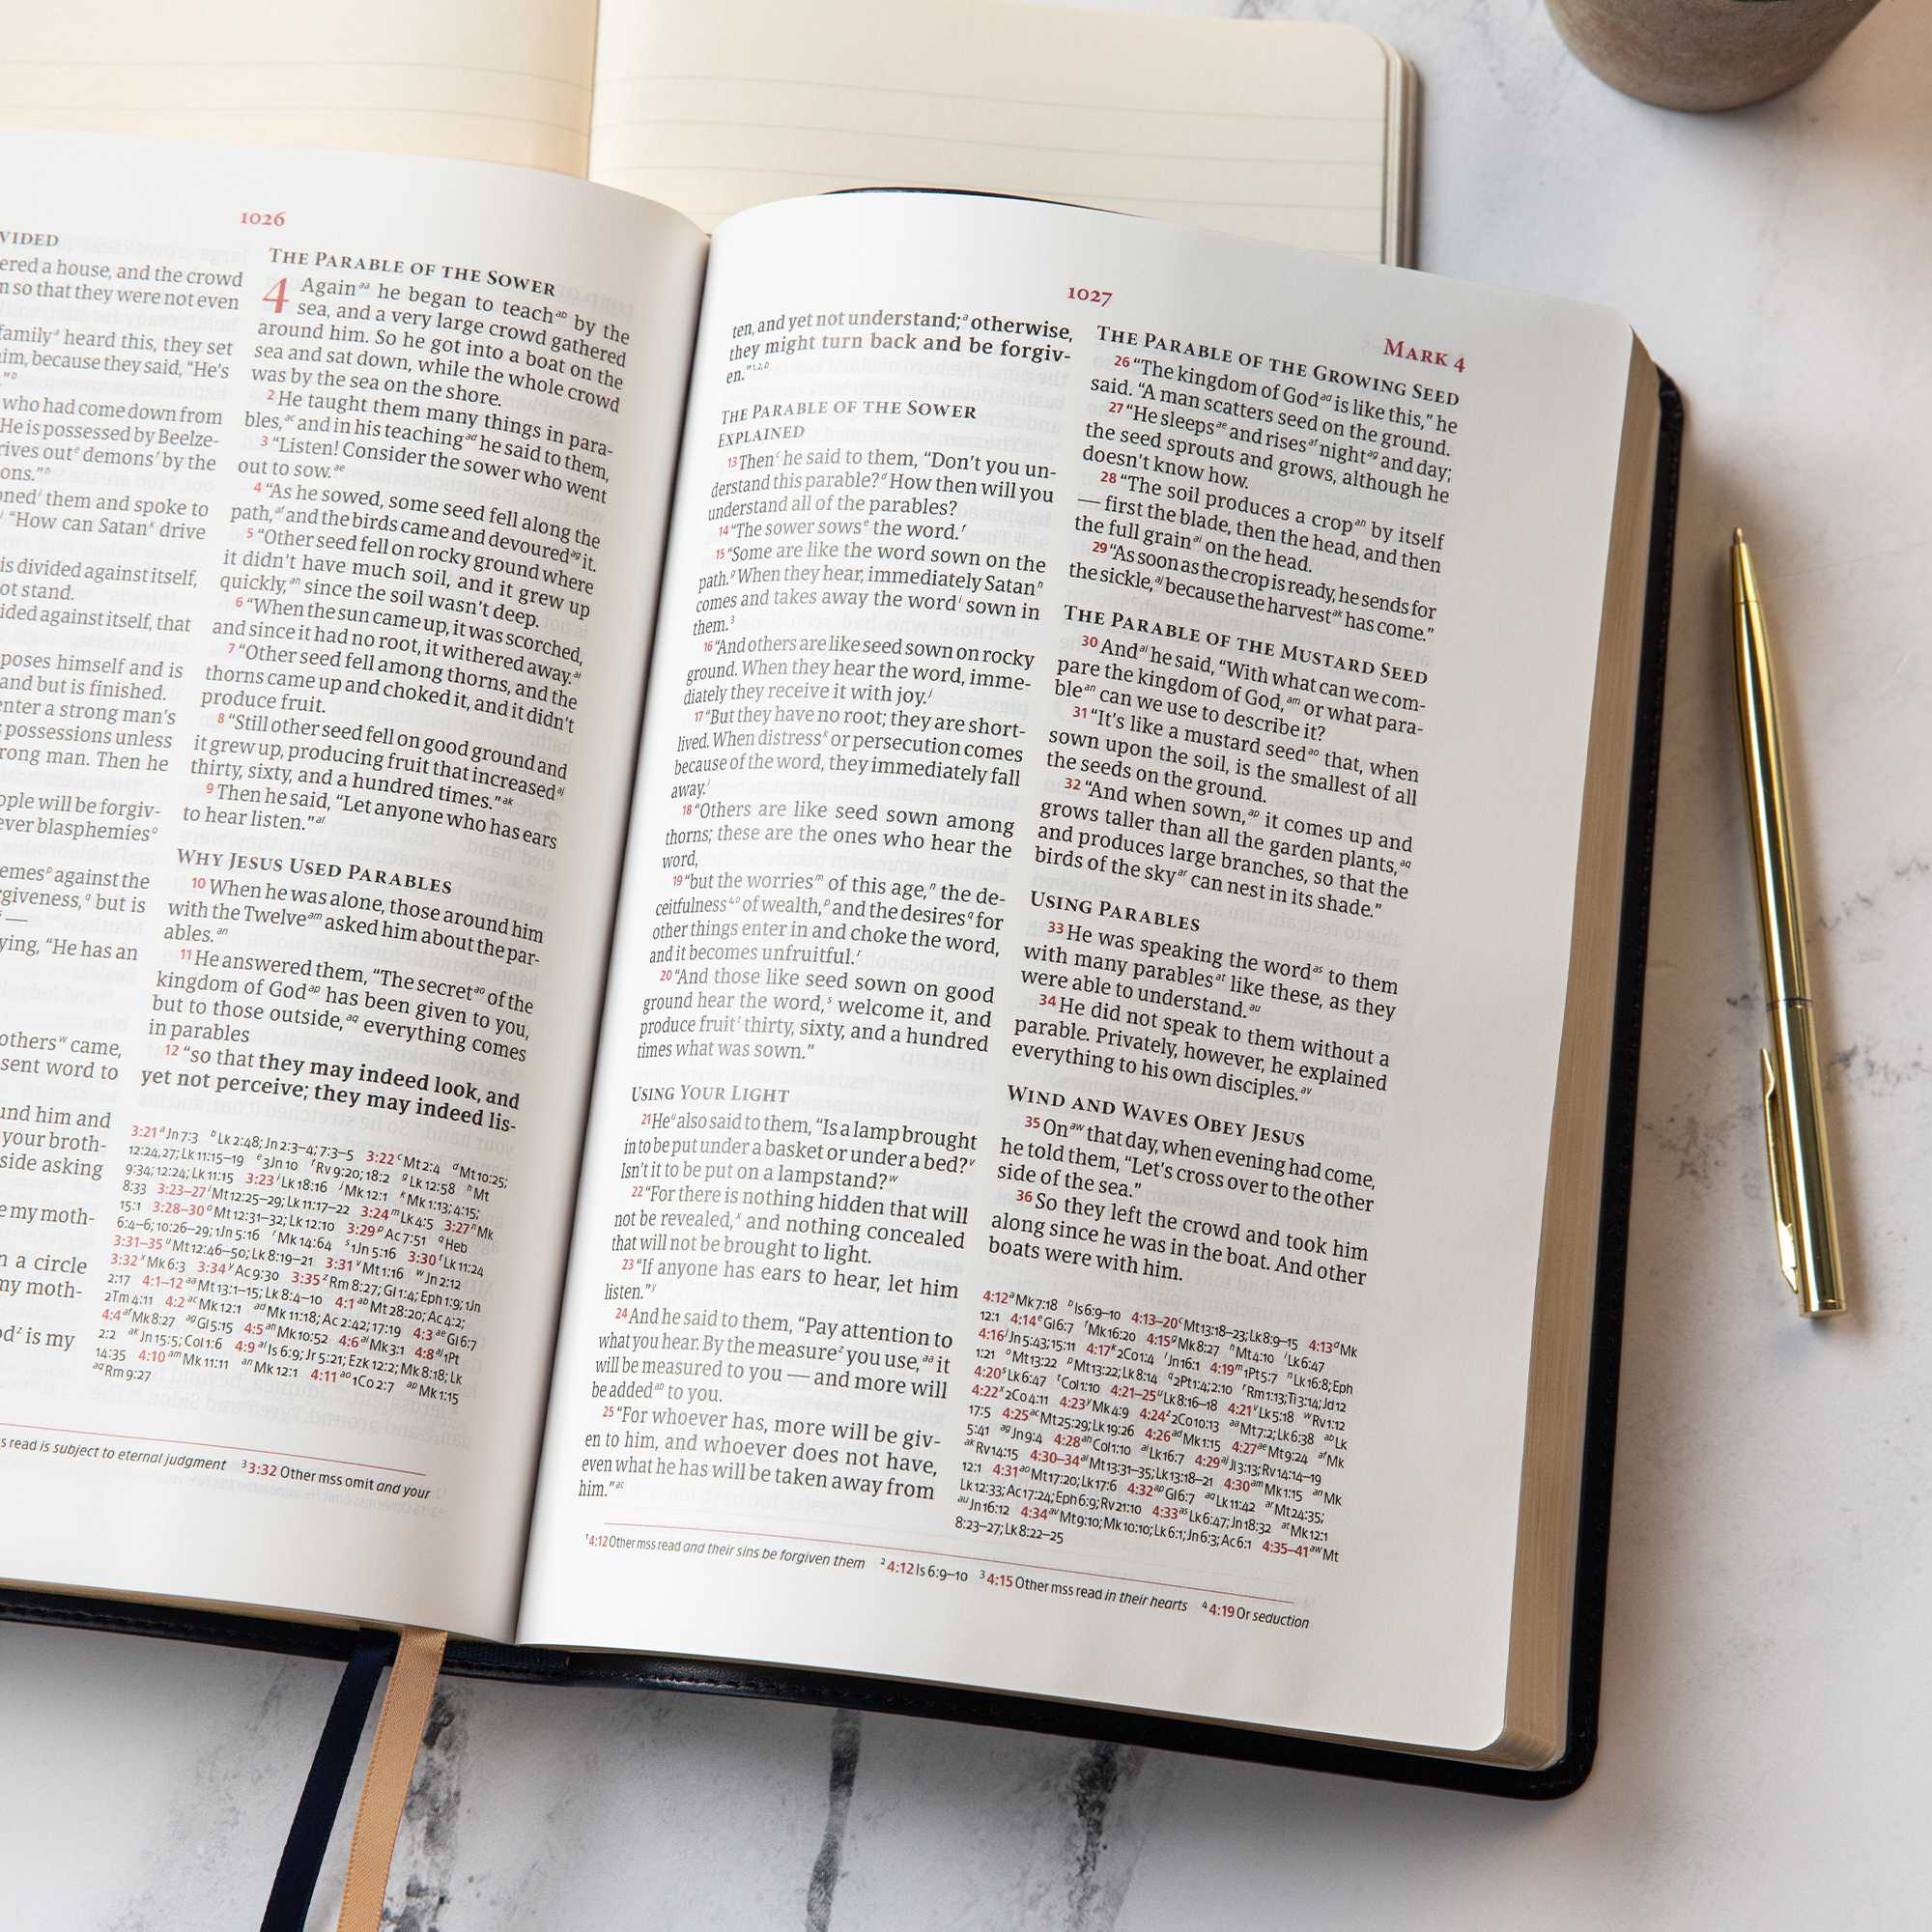 1026
VIDED
ered a house, and the crowd
n so that they were not even
family heard this, they set
im, because they said, “He's
”ᵇ
who had come down from
He is possessed by Beelze-
rives outᵉ demonsᶠ by the
ons.”
oned them and spoke to
“How can Satanᵏ drive
is divided against itself,
ot stand.
ided against itself, that
poses himself and is
and but is finished.
enter a strong man's
possessions unless
rong man. Then he
ople will be forgiv-
ever blasphemiesᵒ
emesᵖ against the
giveness,ᑫ but is
—
ying, “He has an
othersʷ came,
sent word to
und him and
your broth-
side asking
e my moth-
n a circle
my moth-
odᶻ is my
THE PARABLE OF THE SOWER
4 Againᵃᵃ he began to teachᵃᵇ by the
sea, and a very large crowd gathered
around him. So he got into a boat on the
sea and sat down, while the whole crowd
was by the sea on the shore.
2 He taught them many things in para-
bles,ᵃᶜ and in his teachingᵃᵈ he said to them,
3 “Listen! Consider the sower who went
out to sow.ᵃᵉ
4 “As he sowed, some seed fell along the
path,ᵃᶠ and the birds came and devouredᵃᵍ it.
5 “Other seed fell on rocky ground where
it didn't have much soil, and it grew up
quickly,ᵃʰ since the soil wasn't deep.
6 “When the sun came up, it was scorched,
and since it had no root, it withered away.ᵃⁱ
7 “Other seed fell among thorns, and the
thorns came up and choked it, and it didn't
produce fruit.
8 “Still other seed fell on good ground and
it grew up, producing fruit that increasedᵃʲ
thirty, sixty, and a hundred times.”ᵃᵏ
9 Then he said, “Let anyone who has ears
to hear listen.”ᵃˡ
WHY JESUS USED PARABLES
10 When he was alone, those around him
with the Twelveᵃᵐ asked him about the par-
ables.ᵃⁿ
11 He answered them, “The secretᵃᵒ of the
kingdom of Godᵃᵖ has been given to you,
but to those outside,ᵃᑫ everything comes
in parables
12 “so that they may indeed look, and
yet not perceive; they may indeed lis-
3:21 ᵃJn 7:3 ᵇLk 2:48; Jn 2:3–4; 7:3–5 3:22 ᶜMt 2:4 ᵈMt 10:25;
12:24,27; Lk 11:15–19 ᵉ3Jn 10 ᶠRv 9:20; 18:2 ᵍLk 12:58 ʰMt
9:34; 12:24; Lk 11:15 3:23 ⁱLk 18:16 ʲMk 12:1 ᵏMk 1:13; 4:15;
8:33 3:23–27 ˡMt 12:25–29; Lk 11:17–22 3:24 ᵐLk 4:5 3:27 ⁿMk
15:1 3:28–30 ᵒMt 12:31–32; Lk 12:10 3:29 ᵖAc 7:51 ᑫHeb
6:4–6; 10:26–29; 1Jn 5:16 ʳMk 14:64 ˢ1Jn 5:16 3:30 ᵗLk 11:24
3:31–35 ᵘMt 12:46–50; Lk 8:19–21 3:31 ᵛMt 1:16 ʷJn 2:12
3:32 ˣMk 6:3 3:34 ʸAc 9:30 3:35 ᶻRm 8:27; Gl 1:4; Eph 1:9; 1Jn
2:17 4:1–12 ᵃᵃMt 13:1–15; Lk 8:4–10 4:1 ᵃᵇMt 28:20; Ac 4:2;
2Tm 4:11 4:2 ᵃᶜMk 12:1 ᵃᵈMk 11:18; Ac 2:42; 17:19 4:3 ᵃᵉGl 6:7
4:4 ᵃᶠMk 8:27 ᵃᵍGl 5:15 4:5 ᵃʰMk 10:52 4:6 ᵃⁱMk 3:1 4:8 ᵃʲ1Pt
2:2 ᵃᵏJn 15:5; Col 1:6 4:9 ᵃˡIs 6:9; Jr 5:21; Ezk 12:2; Mk 8:18; Lk
14:35 4:10 ᵃᵐMk 11:11 ᵃⁿMk 12:1 4:11 ᵃᵒ1Co 2:7 ᵃᵖMk 1:15
ᵃᑫRm 9:27
ss read is subject to eternal judgment ³3:32 Other mss omit and your
1027
MARK 4
ten, and yet not understand;ᵃ otherwise,
they might turn back and be forgiv-
en.”¹,²,ᵇ
THE PARABLE OF THE SOWER
EXPLAINED
13 Thenᶜ he said to them, “Don't you un-
derstand this parable?ᵈ How then will you
understand all of the parables?
14 “The sower sowsᵉ the word.ᶠ
15 “Some are like the word sown on the
path.ᵍ When they hear, immediately Satanʰ
comes and takes away the wordⁱ sown in
them.³
16 “And others are like seed sown on rocky
ground. When they hear the word, imme-
diately they receive it with joy.ʲ
17 “But they have no root; they are short-
lived. When distressᵏ or persecution comes
because of the word, they immediately fall
away.ˡ
18 “Others are like seed sown among
thorns; these are the ones who hear the
word,
19 “but the worriesᵐ of this age,ⁿ the de-
ceitfulness⁴,ᵒ of wealth,ᵖ and the desiresᑫ for
other things enter in and choke the word,
and it becomes unfruitful.ʳ
20 “And those like seed sown on good
ground hear the word,ˢ welcome it, and
produce fruitᵗ thirty, sixty, and a hundred
times what was sown.”
USING YOUR LIGHT
21 Heᵘ also said to them, “Is a lamp brought
in to be put under a basket or under a bed?ᵛ
Isn't it to be put on a lampstand?ʷ
22 “For there is nothing hidden that will
not be revealed,ˣ and nothing concealed
that will not be brought to light.
23 “If anyone has ears to hear, let him
listen.”ʸ
24 And he said to them, “Pay attention to
what you hear. By the measureᶻ you use,ᵃᵃ it
will be measured to you — and more will
be addedᵃᵇ to you.
25 “For whoever has, more will be giv-
en to him, and whoever does not have,
even what he has will be taken away from
him.”ᵃᶜ
THE PARABLE OF THE GROWING SEED
26 “The kingdom of Godᵃᵈ is like this,” he
said. “A man scatters seed on the ground.
27 “He sleepsᵃᵉ and risesᵃᶠ nightᵃᵍ and day;
the seed sprouts and grows, although he
doesn't know how.
28 “The soil produces a cropᵃʰ by itself
— first the blade, then the head, and then
the full grainᵃⁱ on the head.
29 “As soon as the crop is ready, he sends for
the sickle,ᵃʲ because the harvestᵃᵏ has come.”
THE PARABLE OF THE MUSTARD SEED
30 Andᵃˡ he said, “With what can we com-
pare the kingdom of God,ᵃᵐ or what para-
bleᵃⁿ can we use to describe it?
31 “It's like a mustard seedᵃᵒ that, when
sown upon the soil, is the smallest of all
the seeds on the ground.
32 “And when sown,ᵃᵖ it comes up and
grows taller than all the garden plants,ᵃᑫ
and produces large branches, so that the
birds of the skyᵃʳ can nest in its shade.”
USING PARABLES
33 He was speaking the wordᵃˢ to them
with many parablesᵃᵗ like these, as they
were able to understand.ᵃᵘ
34 He did not speak to them without a
parable. Privately, however, he explained
everything to his own disciples.ᵃᵛ
WIND AND WAVES OBEY JESUS
35 Onᵃʷ that day, when evening had come,
he told them, “Let's cross over to the other
side of the sea.”
36 So they left the crowd and took him
along since he was in the boat. And other
boats were with him.
4:12 ᵃMk 7:18 ᵇIs 6:9–10 4:13–20 ᶜMt 13:18–23; Lk 8:9–15 4:13 ᵈMk
12:1 4:14 ᵉGl 6:7 ᶠMk 16:20 4:15 ᵍMk 8:27 ʰMt 4:10 ⁱLk 6:47
4:16 ʲJn 5:43; 15:11 4:17 ᵏ2Co 1:4 ˡJn 16:1 4:19 ᵐ1Pt 5:7 ⁿLk 16:8; Eph
1:21 ᵒMt 13:22 ᵖMt 13:22; Lk 8:14 ᑫ2Pt 1:4; 2:10 ʳRm 1:13; Ti 3:14; Jd 12
4:20 ˢLk 6:47 ᵗCol 1:10 4:21–25 ᵘLk 8:16–18 4:21 ᵛLk 5:18 ʷRv 1:12
4:22 ˣ2Co 4:11 4:23 ʸMk 4:9 4:24 ᶻ2Co 10:13 ᵃᵃMt 7:2; Lk 6:38 ᵃᵇLk
17:5 4:25 ᵃᶜMt 25:29; Lk 19:26 4:26 ᵃᵈMk 1:15 4:27 ᵃᵉMt 9:24 ᵃᶠMk
5:41 ᵃᵍJn 9:4 4:28 ᵃʰCol 1:10 ᵃⁱLk 16:7 4:29 ᵃʲJl 3:13; Rv 14:14–19
ᵃᵏRv 14:15 4:30–34 ᵃˡMt 13:31–35; Lk 13:18–21 4:30 ᵃᵐMk 1:15 ᵃⁿMk
12:1 4:31 ᵃᵒMt 17:20; Lk 17:6 4:32 ᵃᵖGl 6:7 ᵃᑫLk 11:42 ᵃʳMt 24:35;
Lk 12:33; Ac 17:24; Eph 6:9; Rv 21:10 4:33 ᵃˢLk 6:47; Jn 18:32 ᵃᵗMk 12:1
ᵃᵘJn 16:12 4:34 ᵃᵛMt 9:10; Mk 10:10; Lk 6:1; Jn 6:3; Ac 6:1 4:35–41 ᵃʷMt
8:23–27; Lk 8:22–25
¹4:12 Other mss read and their sins be forgiven them ²4:12 Is 6:9–10 ³4:15 Other mss read in their hearts ⁴4:19 Or seduction